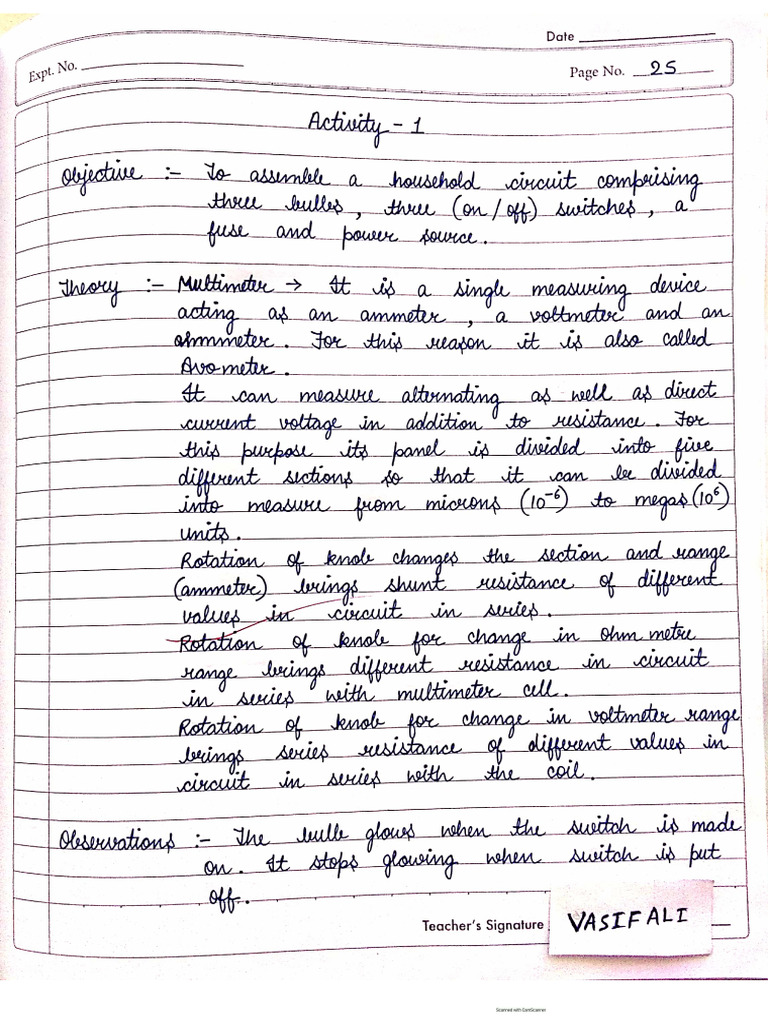 Date
Expt. No.
Page No. 25
Activity - 1
Objective :- To assemble a household circuit comprising
three bulbs, three (on/off) switches, a
fuse and power source.
Theory :- Multimeter → It is a single measuring device
acting as an ammeter, a voltmeter and an
ohmmeter. For this reason it is also called
Avometer.
It can measure alternating as well as direct
current voltage in addition to resistance. For
this purpose its panel is divided into five
different sections so that it can be divided
into measure from microns (10⁻⁶) to megas (10⁶)
units.
Rotation of knob changes the section and range
(ammeter) brings shunt resistance of different
values in circuit in series.
Rotation of knob for change in ohm metre
range brings different resistance in circuit
in series with multimeter cell.
Rotation of knob for change in voltmeter range
brings series resistance of different values in
circuit in series with the coil.
Observations :- The bulb glows when the switch is made
on. It stops glowing when switch is put
off.
Teacher's Signature VASIF ALI
Scanned with CamScanner